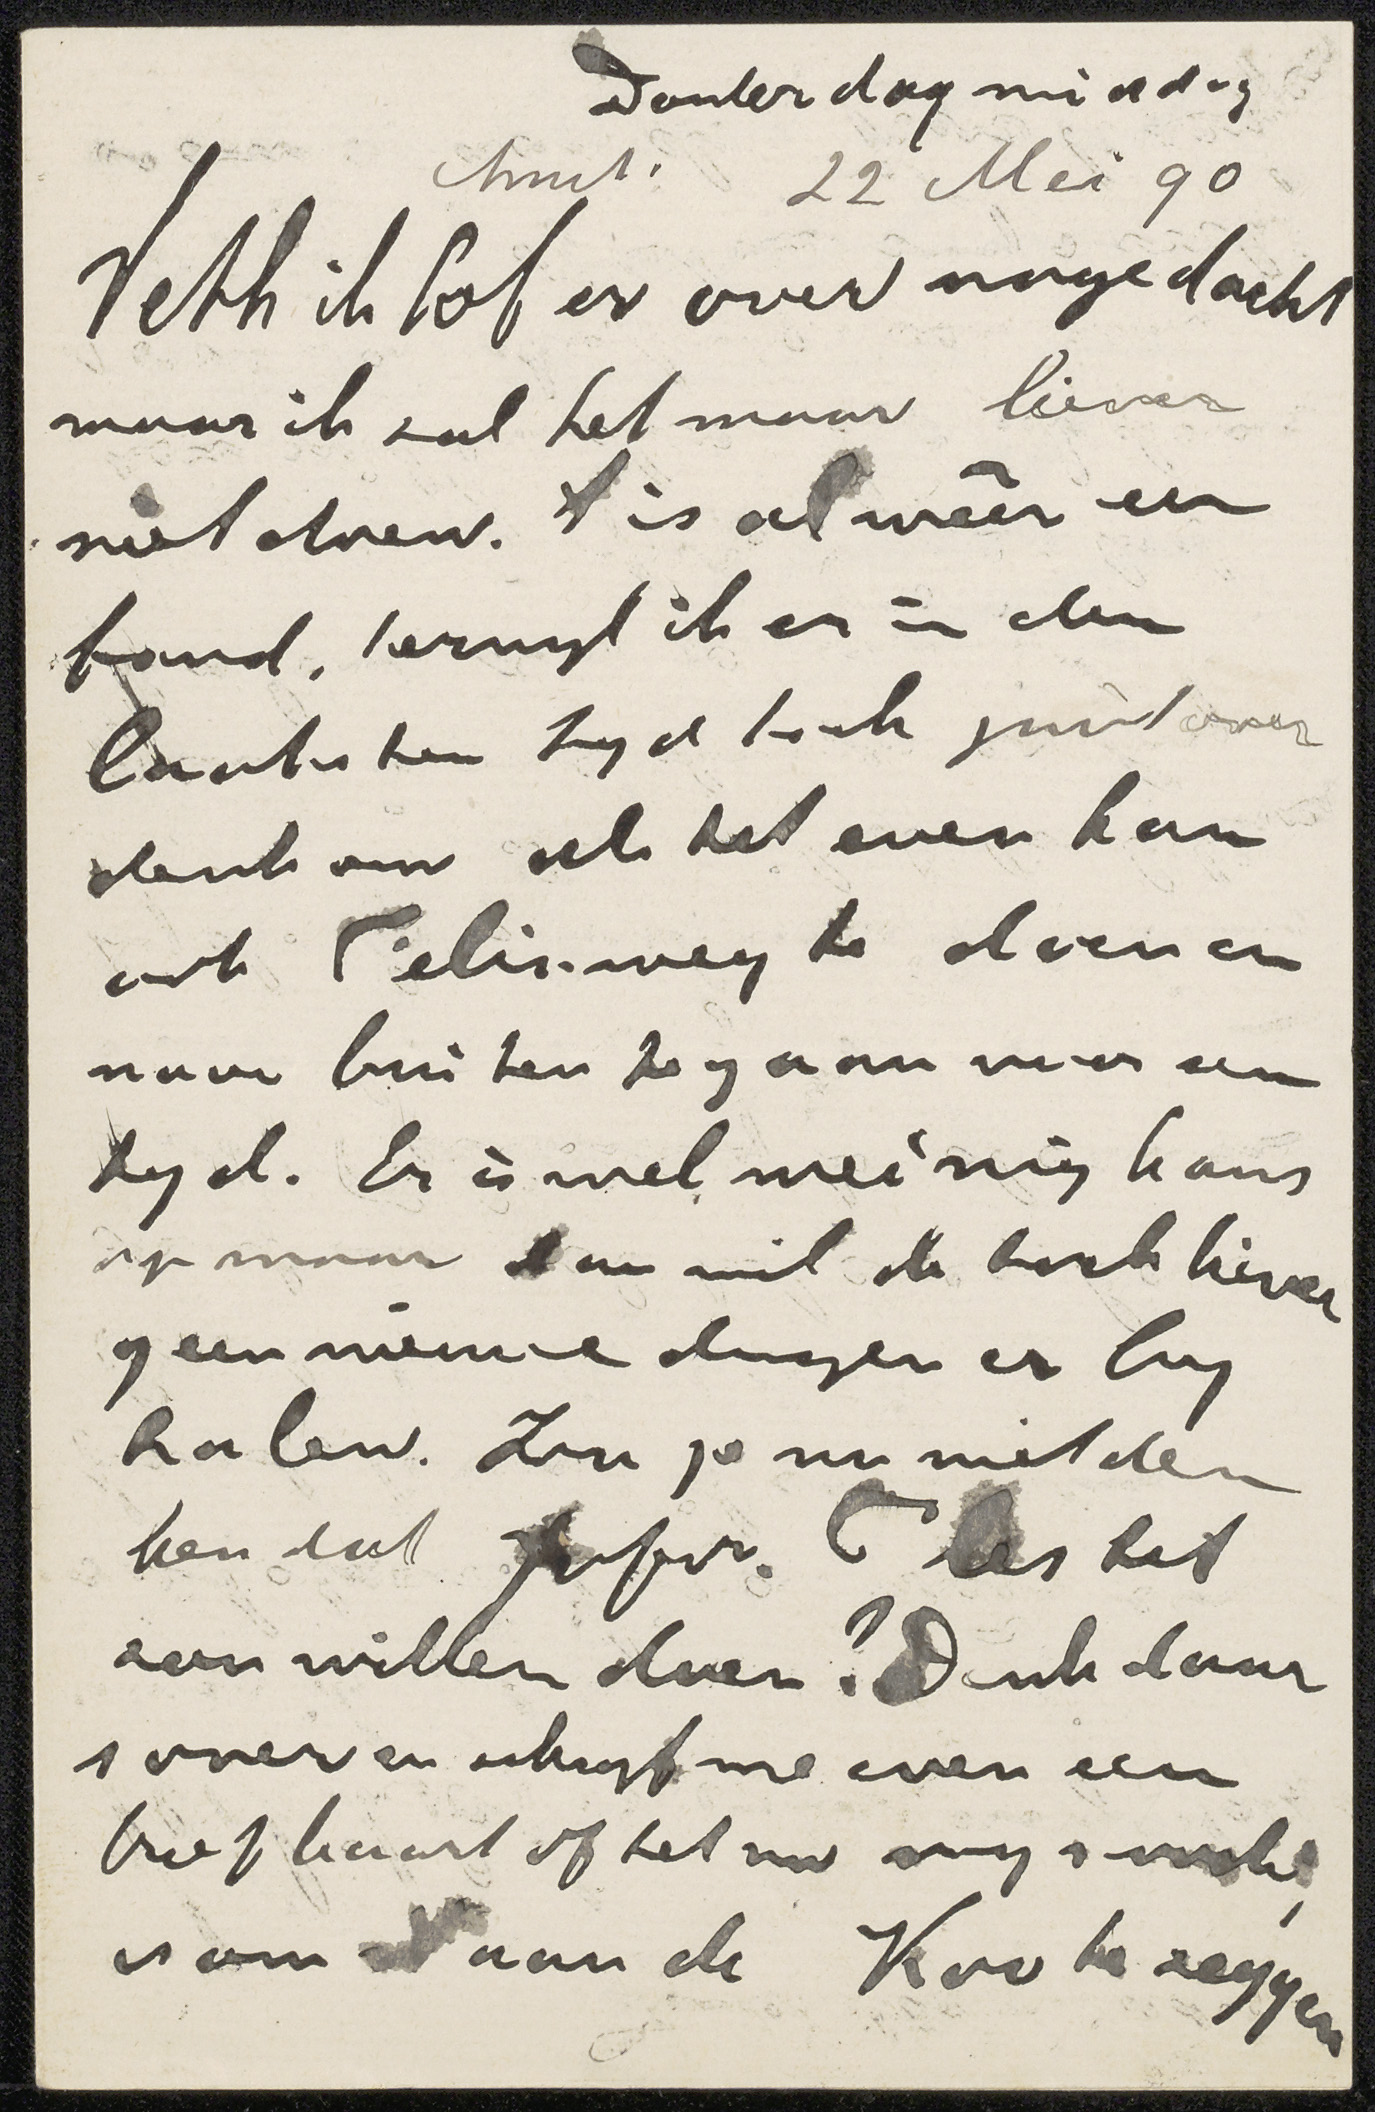 Donderdag middag
Amst. 22 Mei 90
Veth ik heb er over nagedacht
maar ik zal het maar liever
niet doen. 't is alweêr een
band, terwyl ik er in den
laatsten tyd toch juist over
denk om als het even kan
ook weg te doen en
naar buiten te gaan voor een
tyd. Er is wel weinig kans
op maar dan wil ik toch liever
geen nieuwe dingen er by
halen. Zou je nu niet den
ken dat het
zou willen doen? Denk daar
s over en schryf me even een
briefkaart of het nu nog
is om aan de Koo te zeggen